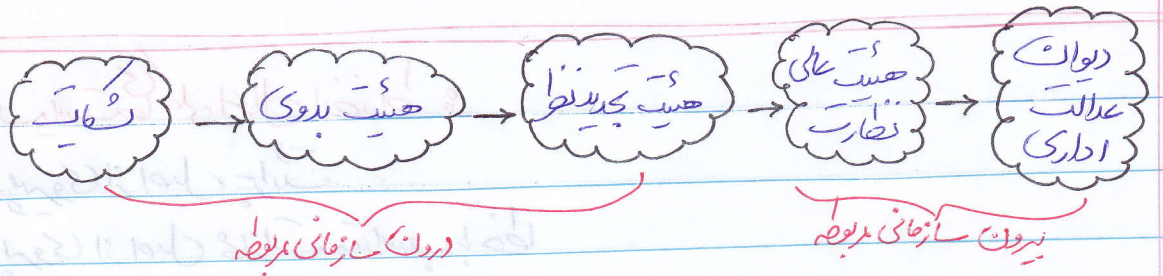 شکایت
هیئت بدوی
هیئت تجدیدنظر
هیئت عالی
نظارت
دیوان
عدالت
اداری
درون سازمانی مربوطه
بیرون سازمانی مربوطه